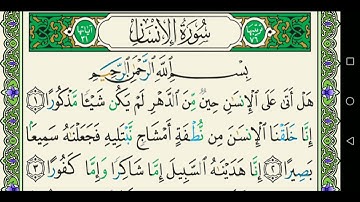 ترتيبها ٧٦
سُورَةُ الإِنسَانِ
آياتها ٣١
بِسْمِ ٱللَّهِ ٱلرَّحْمَٰنِ ٱلرَّحِيمِ
هَلْ أَتَىٰ عَلَى ٱلْإِنسَٰنِ حِينٌ مِّنَ ٱلدَّهْرِ لَمْ يَكُن شَيْـًٔا مَّذْكُورًا ١
إِنَّا خَلَقْنَا ٱلْإِنسَٰنَ مِن نُّطْفَةٍ أَمْشَاجٍ نَّبْتَلِيهِ فَجَعَلْنَٰهُ سَمِيعًۢا
بَصِيرًا ٢ إِنَّا هَدَيْنَٰهُ ٱلسَّبِيلَ إِمَّا شَاكِرًا وَإِمَّا كَفُورًا ٣